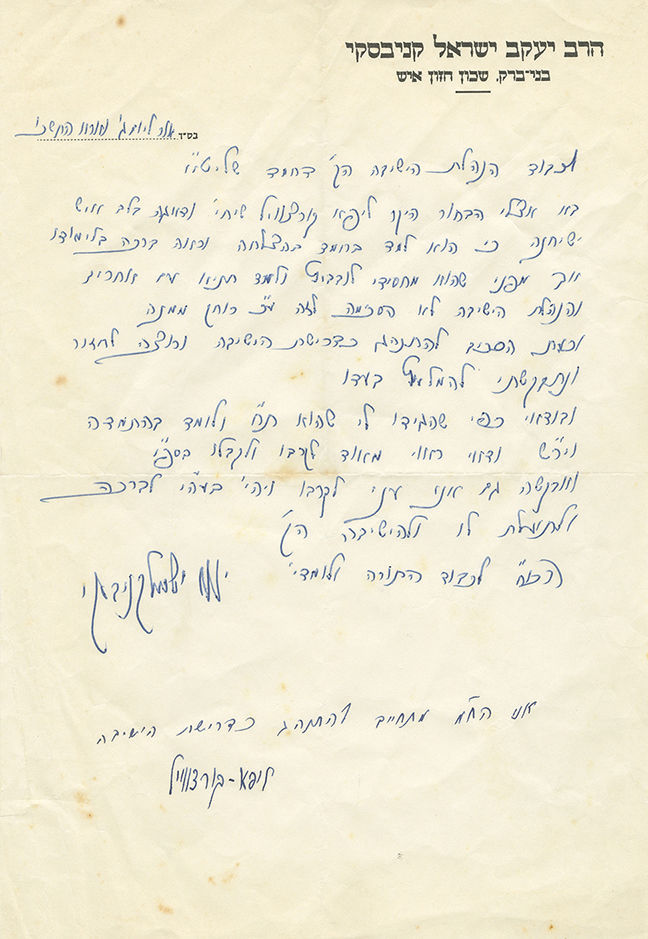 הרב יעקב ישראל קניבסקי
בני־ברק, שכון חזון איש
בס״ד אור ליום ג'
לכבוד הנהלת הישיבה הק' דחמד שליט״א
בא אצלי הבחור היקר ליפא קורצוויל שיחי' ודאגה בלב איש
ישיחנה כי הוא למד בחמד בהצלחה וראה ברכה בלימודו
אך מפני שהוא מחסידי לובביץ ולמד תניא עם אחרים
והנהלת הישיבה לא הסכימה לזה ע״כ רוחק ממנה
וכעת הסכים להתנהג כדרישת הישיבה ורוצה לחזור
ונתבקשתי להמליץ בעדו
ובודאי כפי שהגידו לי שהוא ת״ח ולומד בהתמדה
ויר״ש ודאי ראוי מאוד לקרבו ולקבלו בספ״י
ובבקשה גם אני לקרבו ויהי' בעה״י לברכה
ולתועלת לו ולהישיבה הק'
הכו״ח לכבוד התורה ולומדי'
יעקב ישראל קניבסקי
אני הח״מ מתחייב להתנהג כדרישת הישיבה
ליפא - קורצוויל